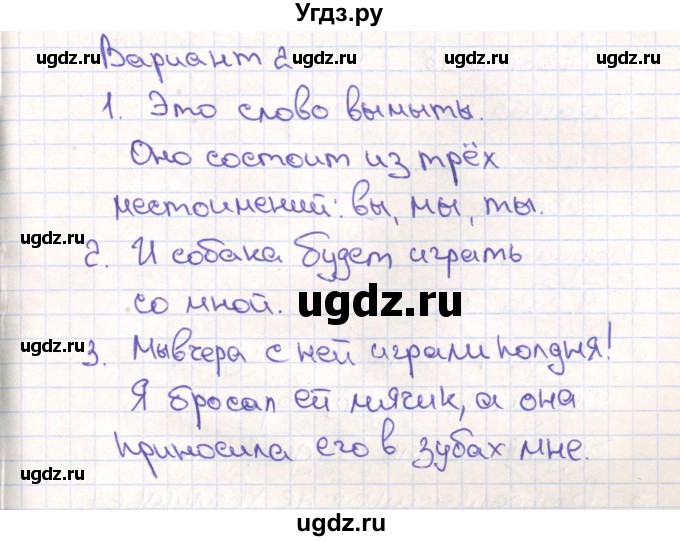 Угдз.ру
ugdz.ru ugdz.ru ugdz.ru
Вариант 2
1. Это слово вымыты.
Оно состоит из трёх
местоимений: вы, мы, ты.
ugdz.ru
2. И собака будет играть
со мной.
ugdz.ru
ugdz.ru
3. Мы вчера с ней играли полдня!
Я бросал ей мячик, а она
приносила его в зубах мне.
ugdz.ru
ugdz.ru